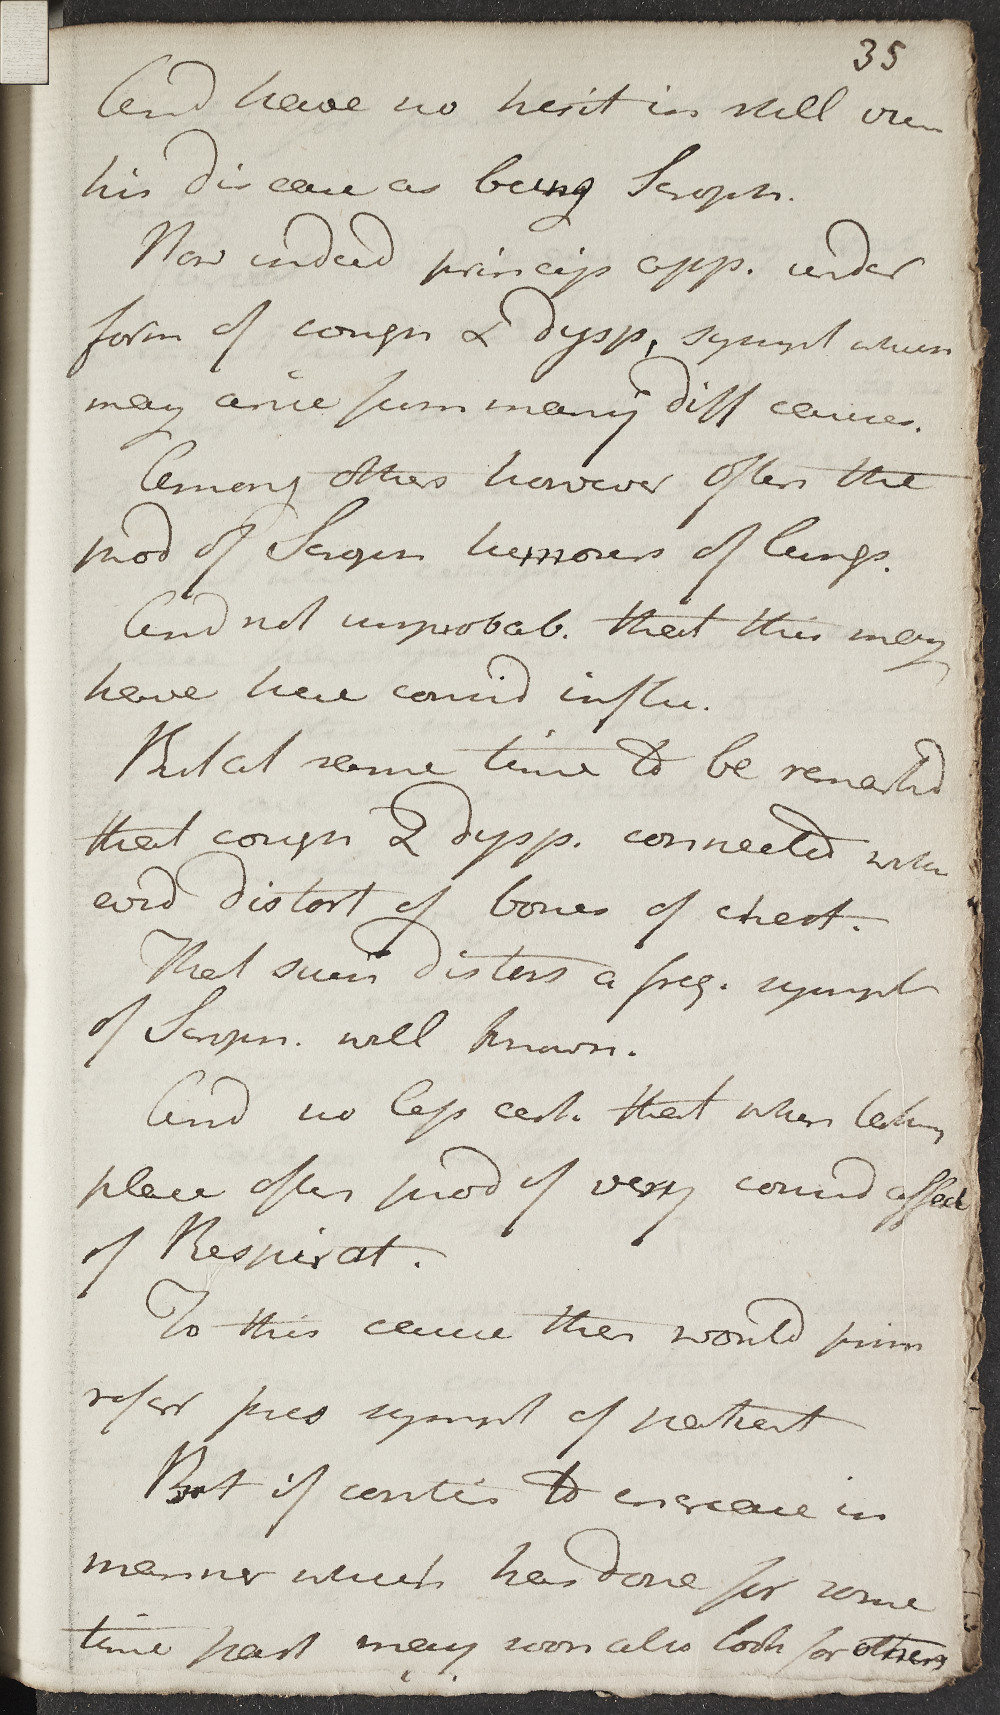 35
And have no hesit in still view
his disease as being Scroph.
Now indeed princip app. under
form of cough & dysp, sympt which
may arise from many diff causes.
Among others however often the
prod of Scroph humours of lungs.
And not improbab. that this may
have here consid influ.
But at same time to be remarkd
that cough & dysp. connected with
evid distort of bones of chest.
That such distors a freq. sympt
of Scroph. well known.
And no less cert. that when taking
place often prod of very consid affect
of Respirat.
To this cause then would prin
refer pres sympt of patient
But if contin to increase in
manner which has done for some
time past may soon also look for others